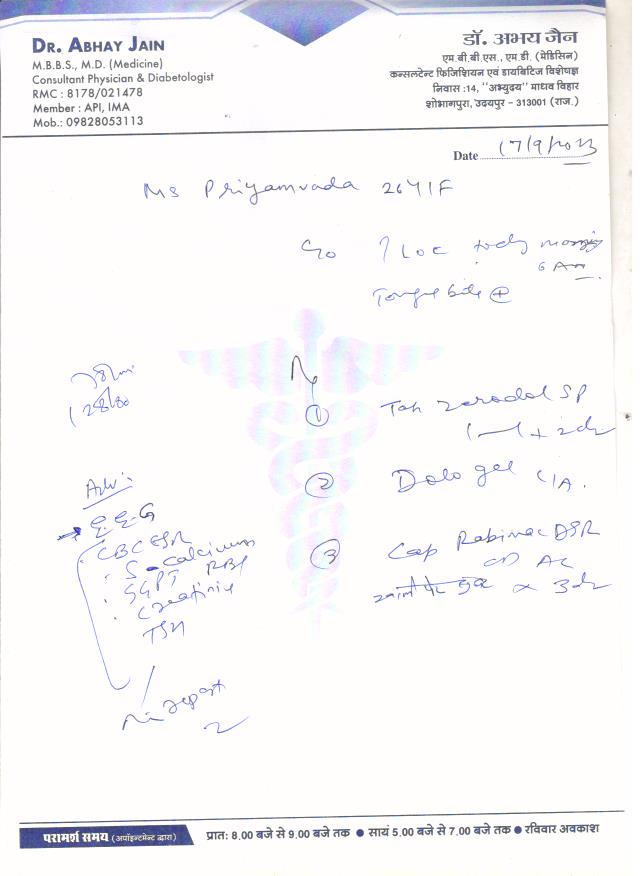 DR. ABHAY JAIN
M.B.B.S., M.D. (Medicine)
Consultant Physician & Diabetologist
RMC : 8178/021478
Member : API, IMA
Mob.: 09828053113
डॉ. अभय जैन
एम.बी.बी.एस., एम.डी. (मेडिसिन)
कन्सलटेन्ट फिजिशियन एवं डायबिटिज विशेषज्ञ
निवास :14, "अभ्युदय" माधव विहार
शोभागपुरा, उदयपुर - 313001 (राज.)
Date 17/9/2023
Ms Priyamvada 26Y/F
C/o ? LOC today morning
6 AM
Tongue bite ⊕
128/80
Rx
① Tab Zerodol SP
1—1 x 2d
② Dologel L/A.
③ Cap Rabimac DSR
OD AC
x 3d
Adv:
E.E.G
CBC ESR
S. calcium
SGPT RBS
Creatinine
TSH
report
परामर्श समय (अपॉइन्टमेन्ट द्वारा)
प्रात: 8.00 बजे से 9.00 बजे तक ● सायं 5.00 बजे से 7.00 बजे तक ● रविवार अवकाश